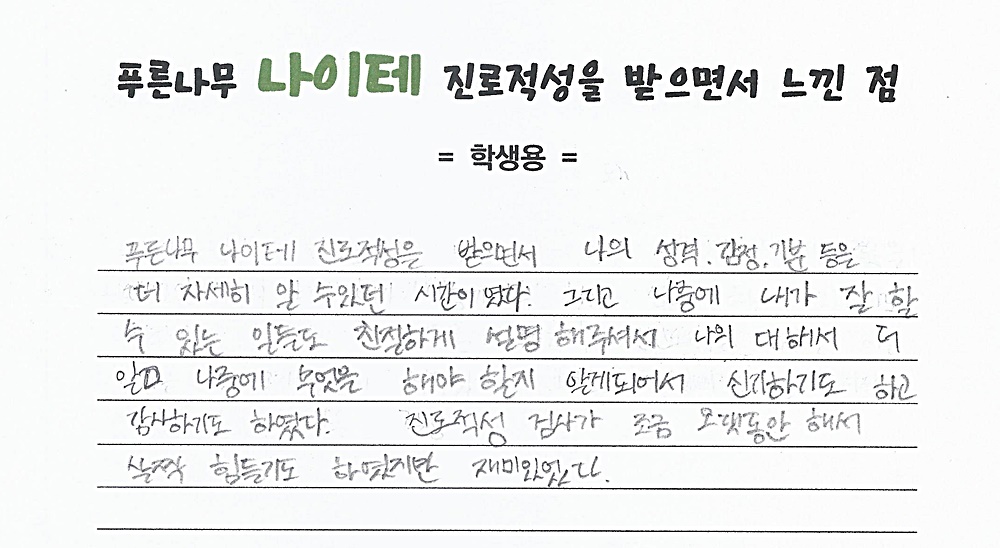 푸른나무 나이테 진로적성을 받으면서 느낀 점
= 학생용 =
푸른나무 나이테 진로적성은 받으면서 나의 성격, 감정, 기분 등을
더 자세히 알 수있던 시간이 였다. 그리고 나중에 내가 잘 할
수 있는 일들도 친절하게 설명 해주셔서 나의 대해서 더
알고 나중에 무엇을 해야 할지 알게되어서 신기하기도 하고
감사하기도 하였다. 진로적성 검사가 조금 오랫동안 해서
살짝 힘들기도 하였지만 재미있었다.